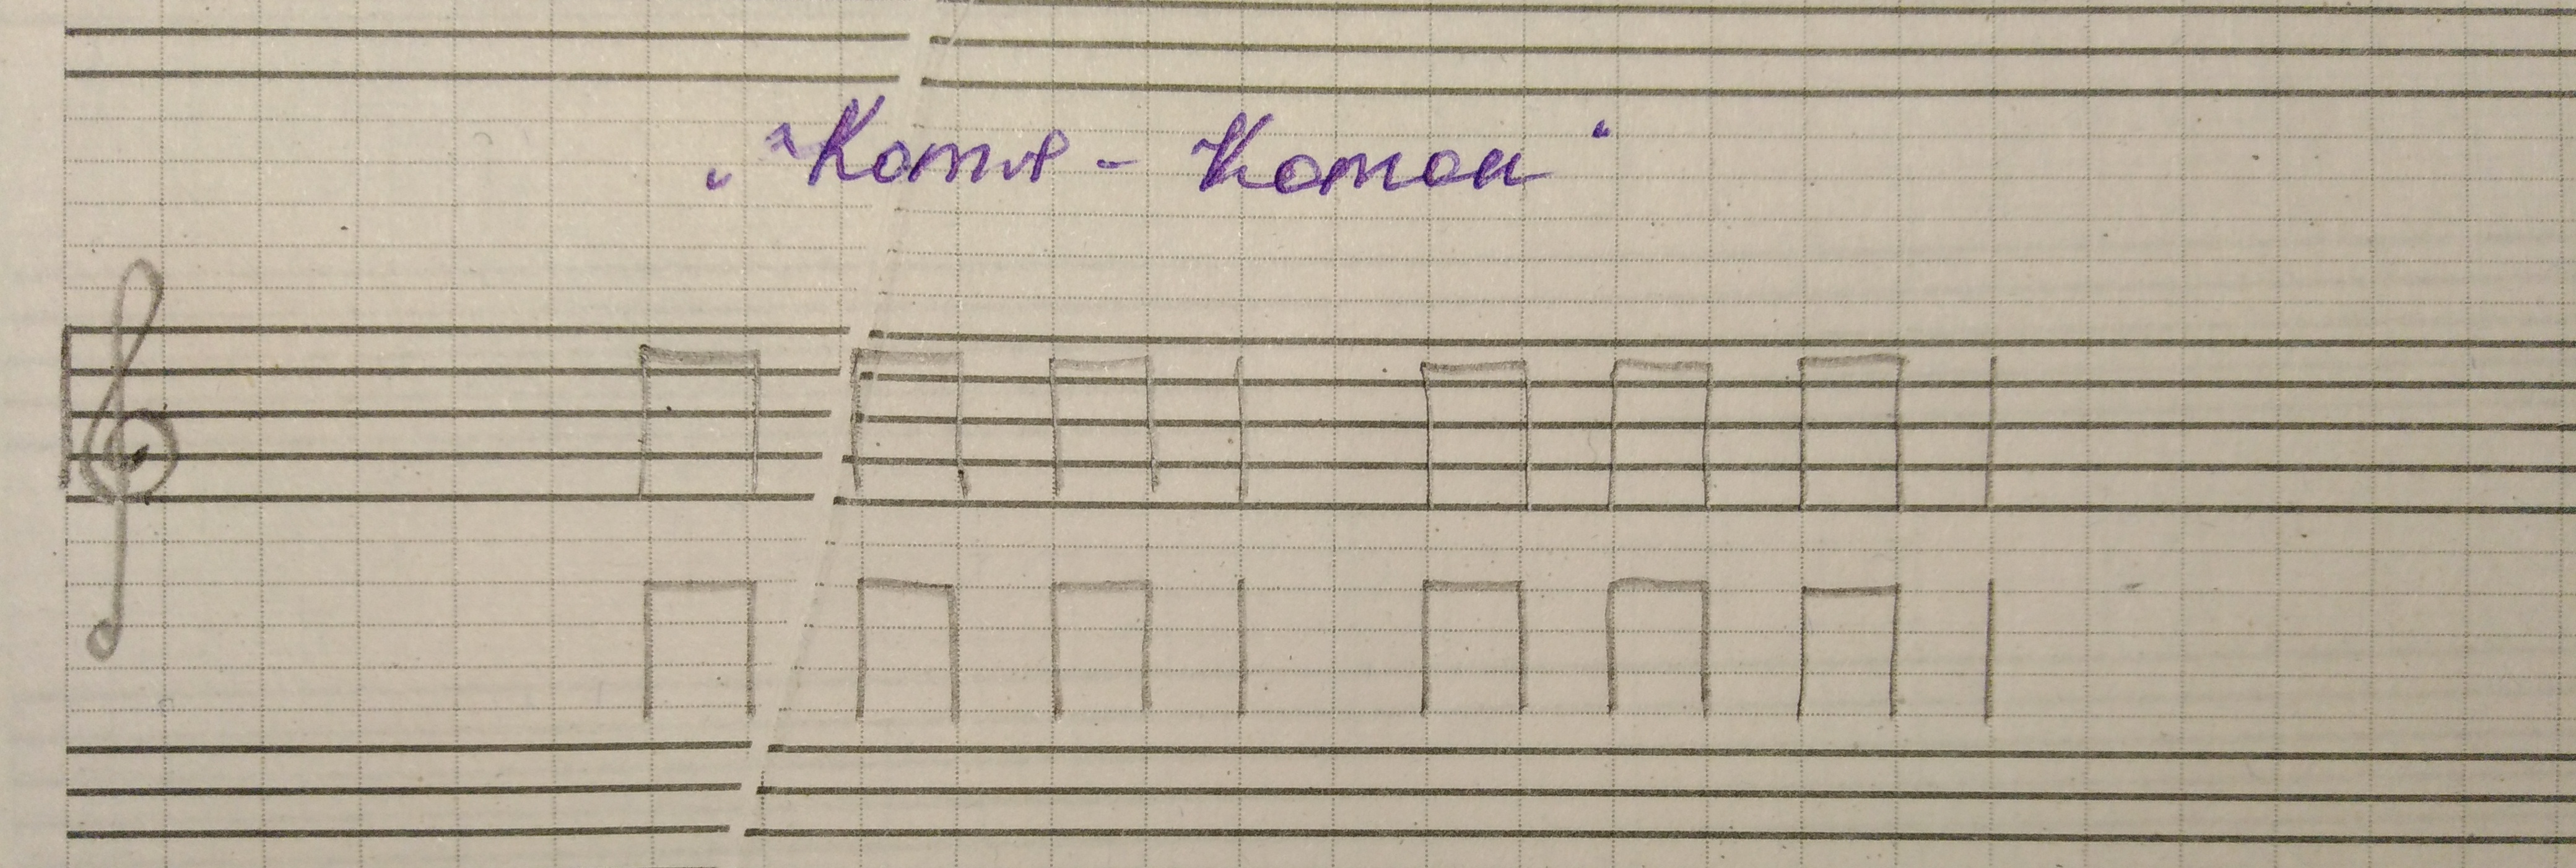 „Котя - Коток"